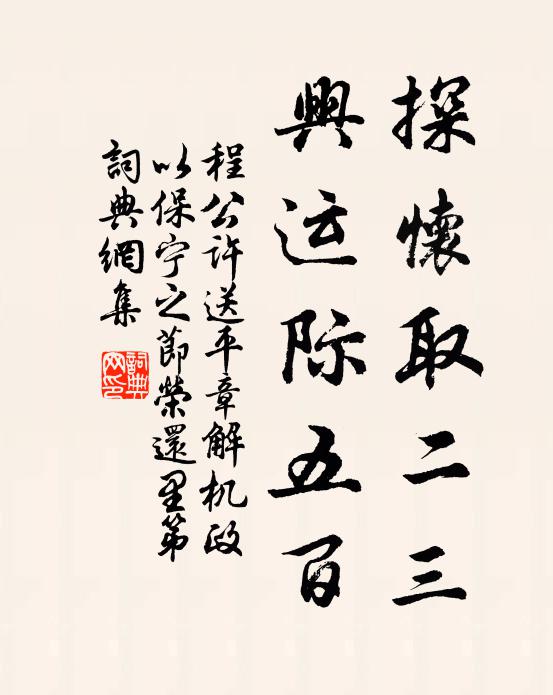 探懷取二三
興运际五百
程公许送平章解机政
以保宁之節榮還里第
詞典網集
詞典網印